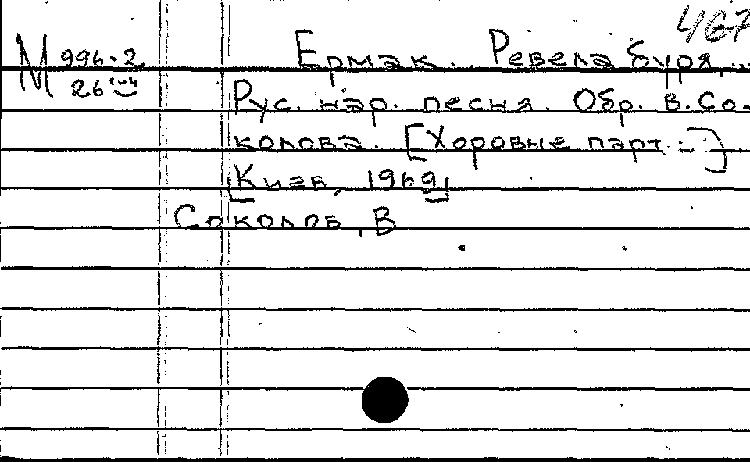 467
М 996-2 Ермак. Ревела буря...
26 Рус. нар. песня. Обр. В. Со-
колова. [Хоровые парт. - ]
[Киев, 1969]
Соколов, В